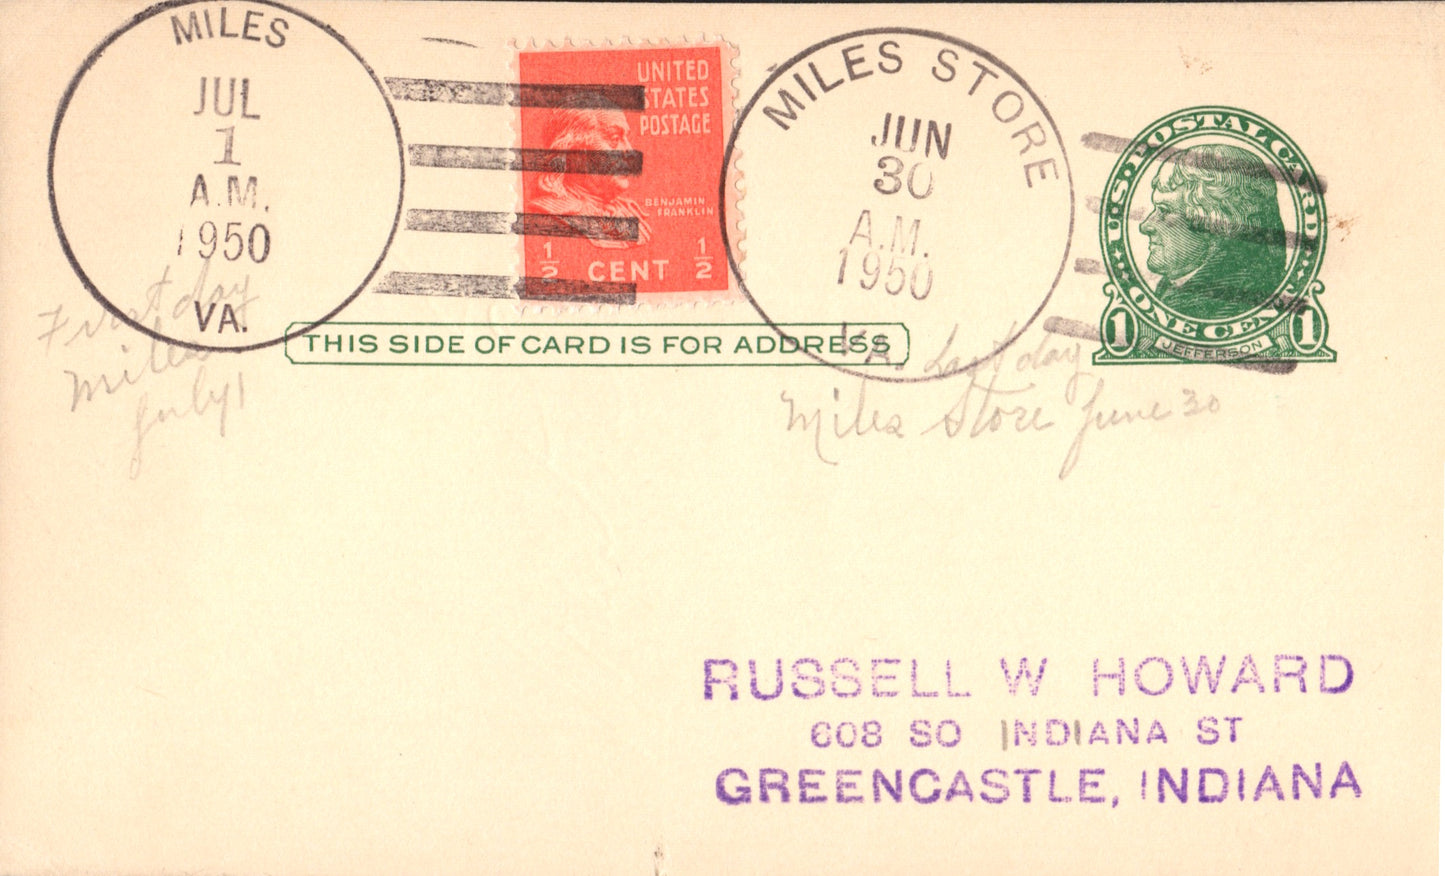 MILES
JUL
1
A.M.
1950
VA.
UNITED
STATES
POSTAGE
BENJAMIN
FRANKLIN
1/2 CENT 1/2
MILES STORE
JUN
30
A.M.
1950
VA.
U.S. POSTAL CARD
1 ONE CENT 1
JEFFERSON
THIS SIDE OF CARD IS FOR ADDRESS
First day
Miles
July 1
Last day
Miles Store June 30
RUSSELL W HOWARD
608 SO INDIANA ST
GREENCASTLE, INDIANA